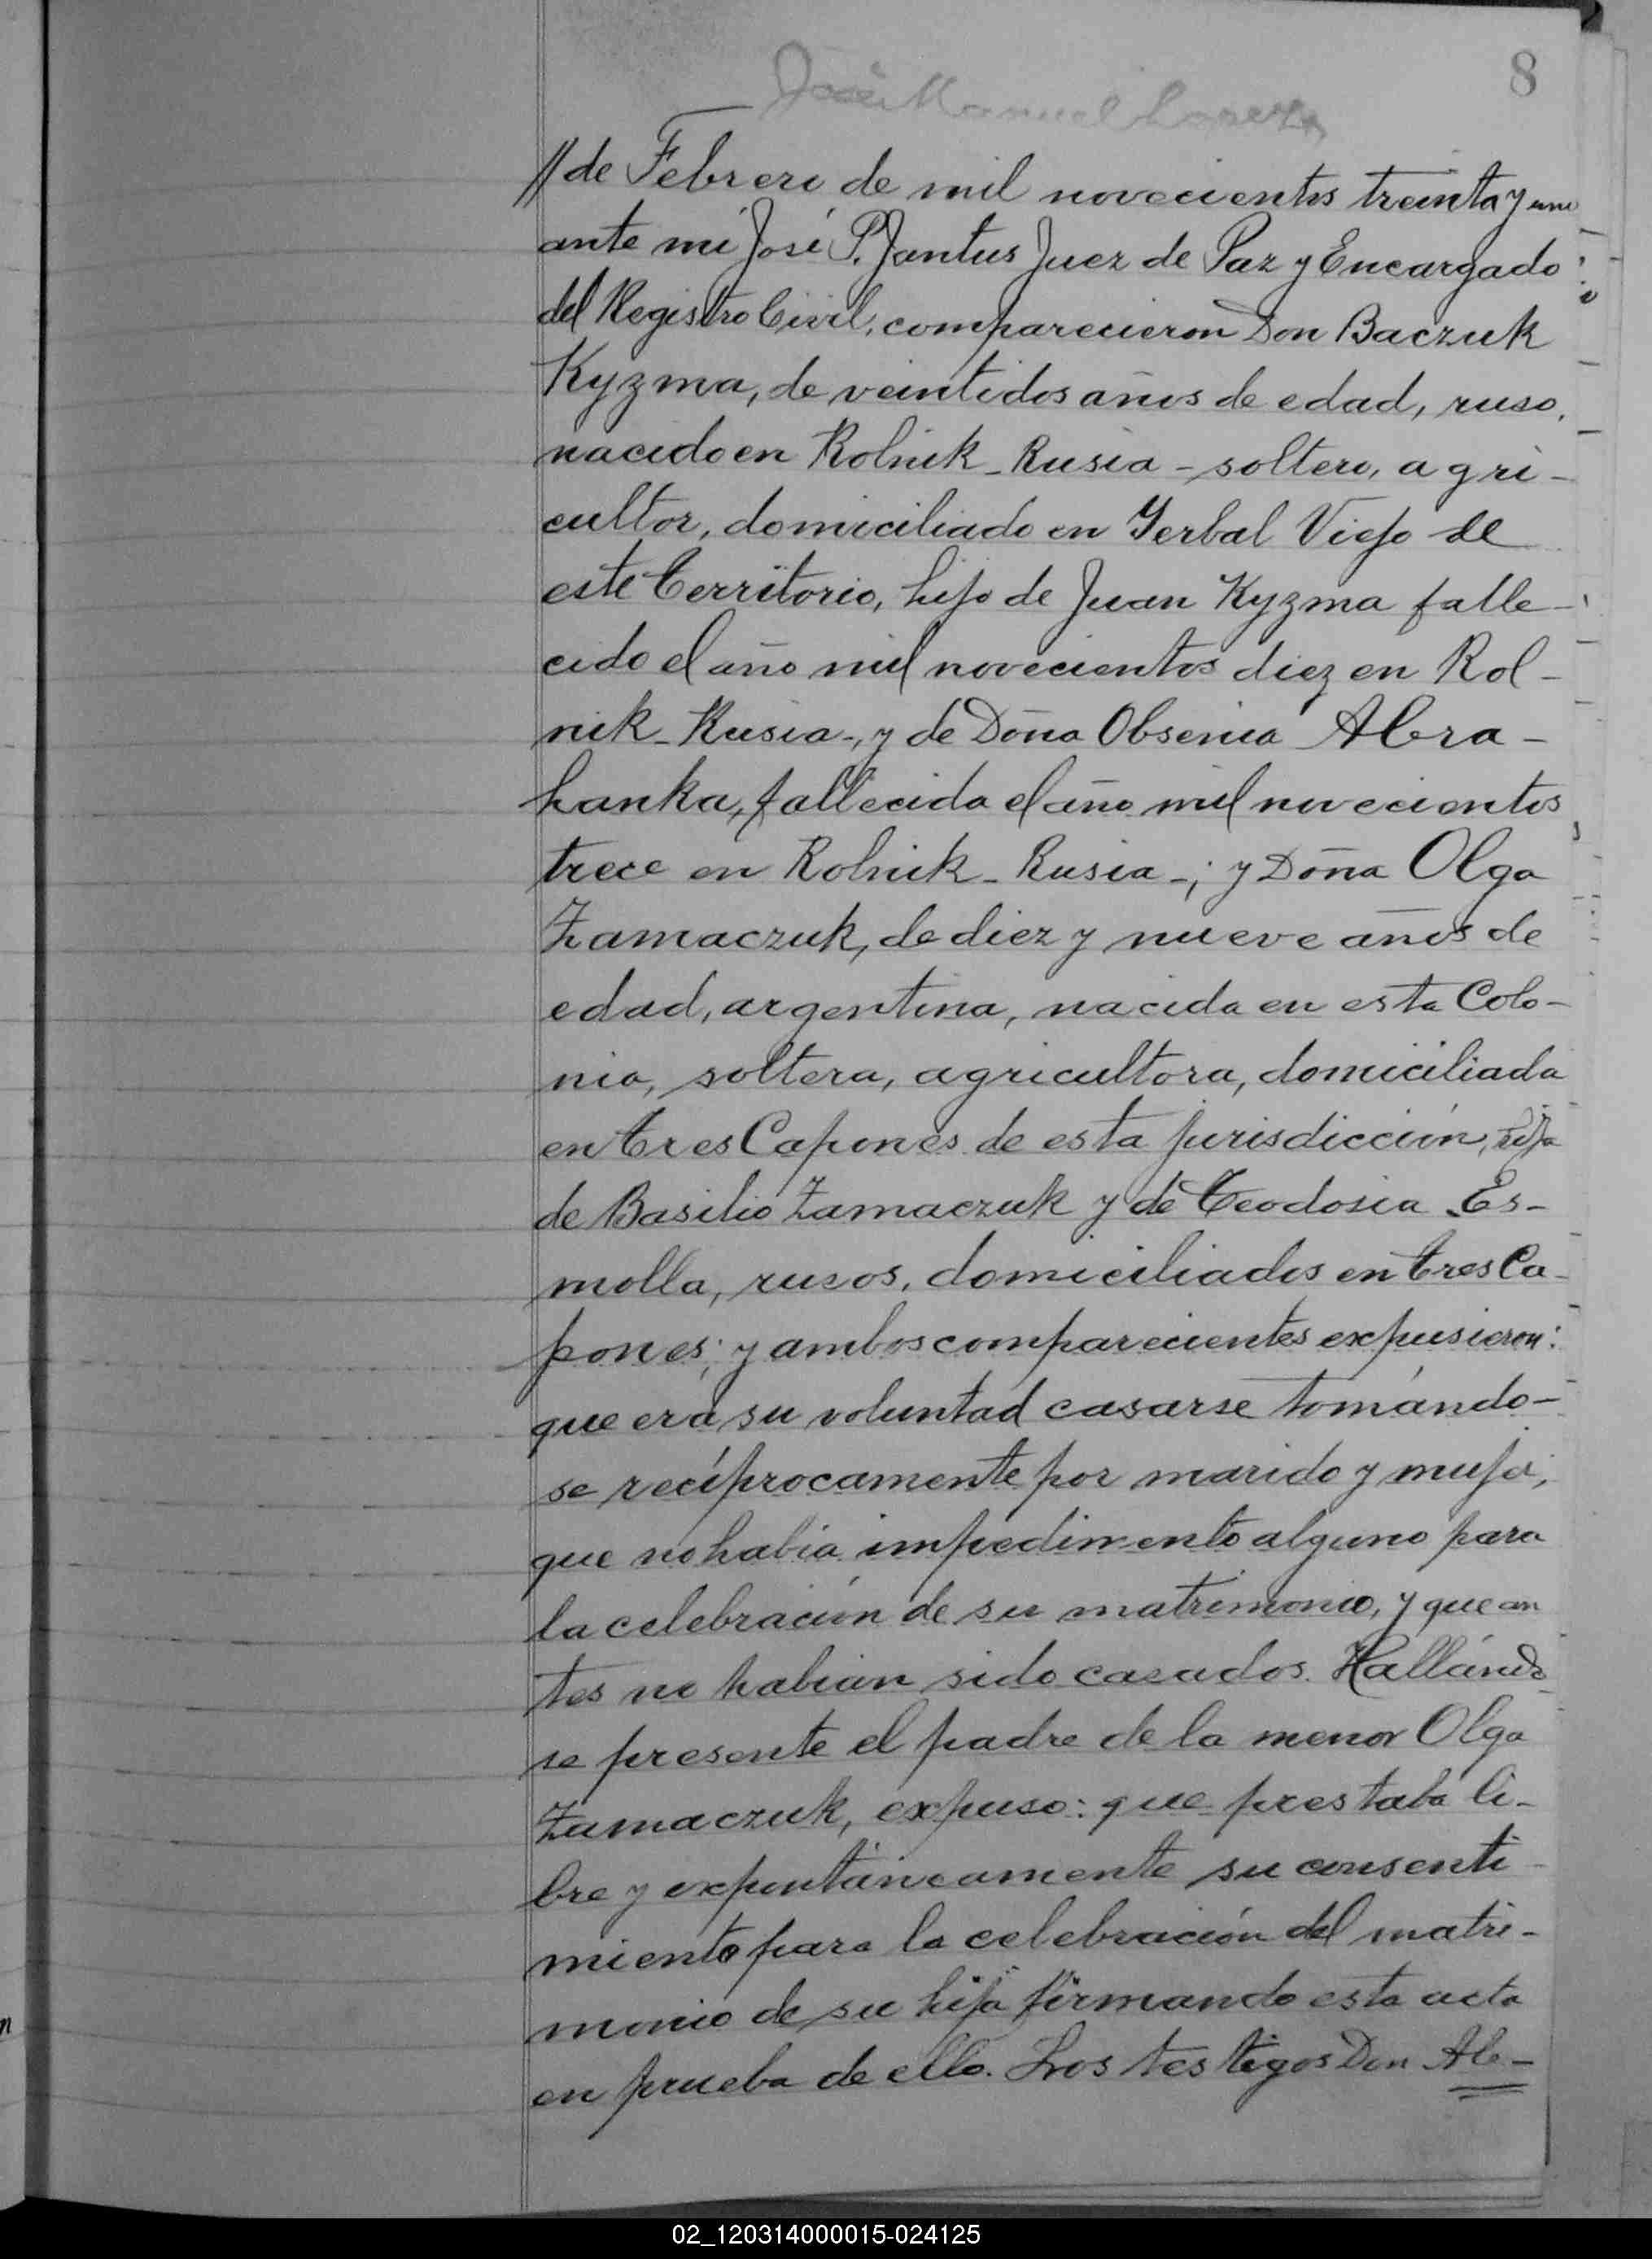 8
José Manuel
// de Febrero de mil novecientos treinta y uno
ante mí José P. Jantus Juez de Paz y Encargado
del Registro Civil, comparecieron Don Baczuk
Kyzma, de veintidos años de edad, ruso,
nacido en Rolnik - Rusia - soltero, agri-
cultor, domiciliado en Yerbal Viejo de
este Territorio, hijo de Juan Kyzma falle-
cido el año mil novecientos diez en Rol-
nik - Rusia -, y de Doña Obsenia Abra-
hanka, fallecida el año mil novecientos
trece en Rolnik - Rusia -; y Doña Olga
Zamaczuk, de diez y nueve años de
edad, argentina, nacida en esta Colo-
nia, soltera, agricultora, domiciliada
en Tres Capones de esta jurisdicción, hija
de Basilio Zamaczuk y de Teodosia Es-
molla, rusos, domiciliados en Tres Ca-
pones; y ambos comparecientes expusieron:
que era su voluntad casarse tomándo-
se recíprocamente por marido y mujer,
que no había impedimento alguno para
la celebración de su matrimonio, y que an
tes no habian sido casados. Hallándo
se presente el padre de la menor Olga
Zamaczuk, expuso: que prestaba li-
bre y expontáneamente su consenti-
miento para la celebración del matri-
monio de su hija firmando esta acta
en prueba de ello. Los testigos Don Ale-
02_120314000015-024125